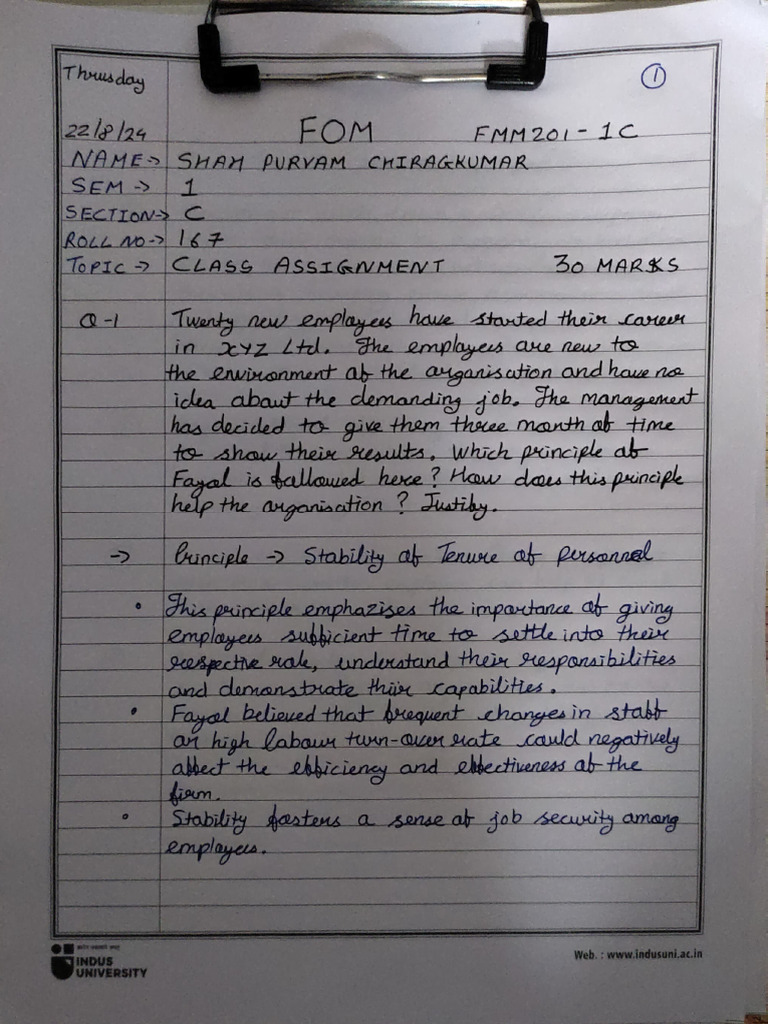 Thrusday
1
22/8/24 FOM FMM201-1C
NAME→ SHAH PURVAM CHIRAGKUMAR
SEM → 1
SECTION→ C
ROLL NO→ 167
TOPIC → CLASS ASSIGNMENT 30 MARKS
Q-1 Twenty new employees have started their career
in XYZ Ltd. The employees are new to
the environment of the organisation and have no
idea about the demanding job. The management
has decided to give them three month of time
to show their results. Which principle of
Fayol is followed here? How does this principle
help the organisation? Justify.
→ Principle → Stability of Tenure of personnel
• This principle emphazises the importance of giving
employees sufficient time to settle into their
respective role, understand their responsibilities
and demonstrate their capabilities.
• Fayol believed that frequent changes in staff
or high labour turn-over rate could negatively
affect the efficiency and effectiveness of the
firm.
• Stability fosters a sense of job security among
employees.
INDUS
UNIVERSITY
Web. : www.indusuni.ac.in